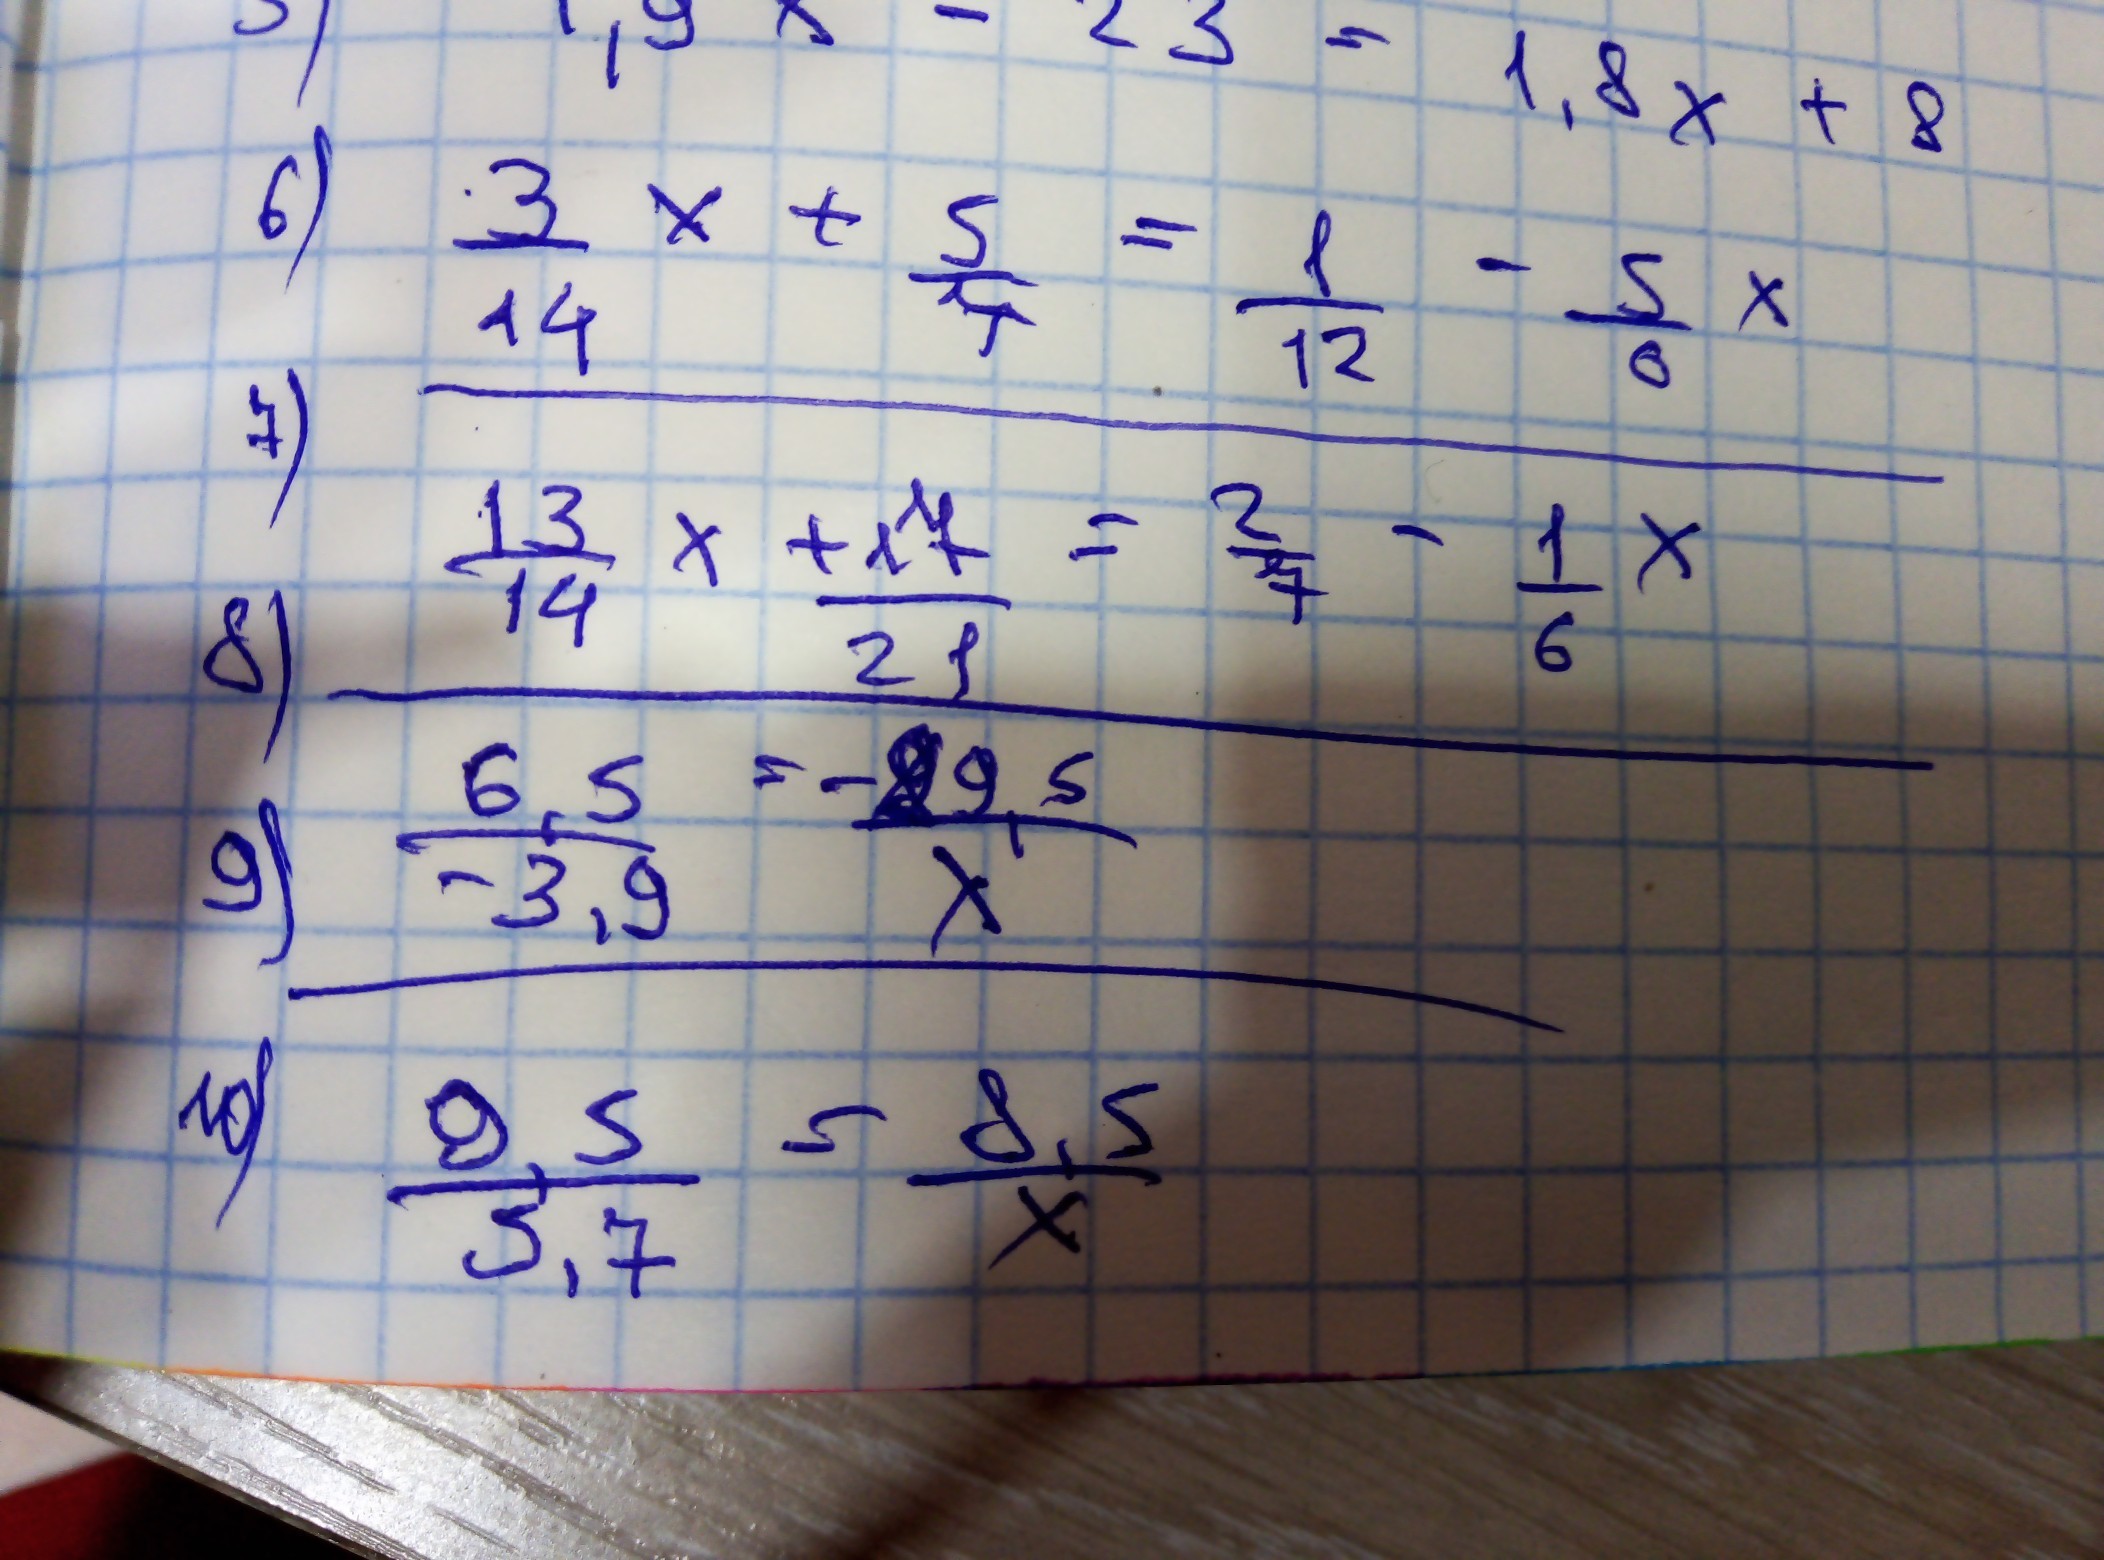 5) 1,9x - 23 = 1,8x + 8
6) 3/14 x + 5/7 = 1/12 - 5/8 x
7)
13/14 x + 17/21 = 2/7 - 1/6 x
8)
6,5/-3,9 = -9,5/x
9)
10) 9,5/5,7 = 8,5/x